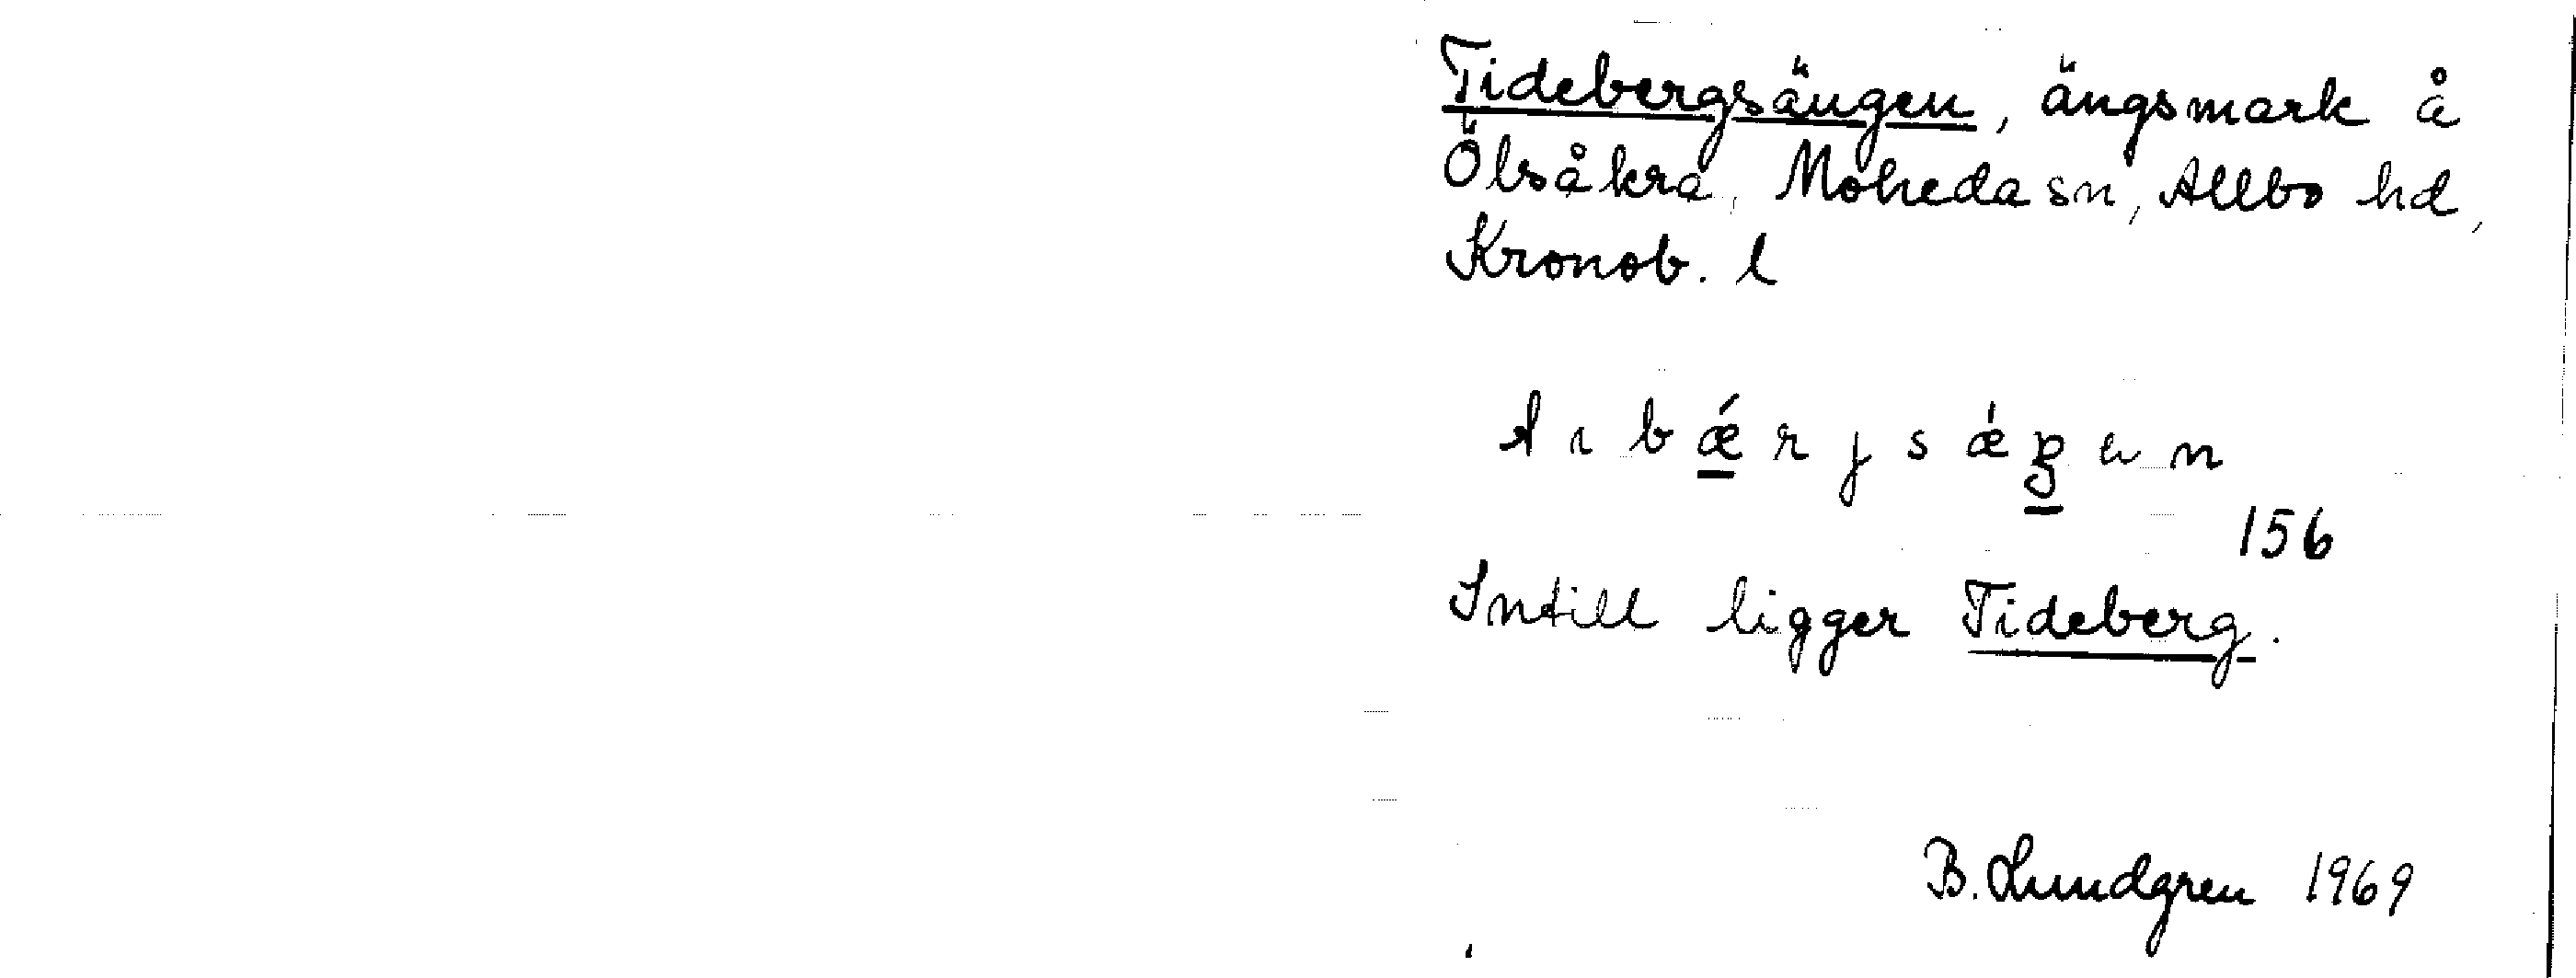 Tidebergsängen, ängsmark å
Ölsåkra, Moheda sn, Allbo hd,
Kronob. l
t ı b ǽ r j s ǽ ŋ e n
156
Intill ligger Tideberg.
B. Lundgren 1969